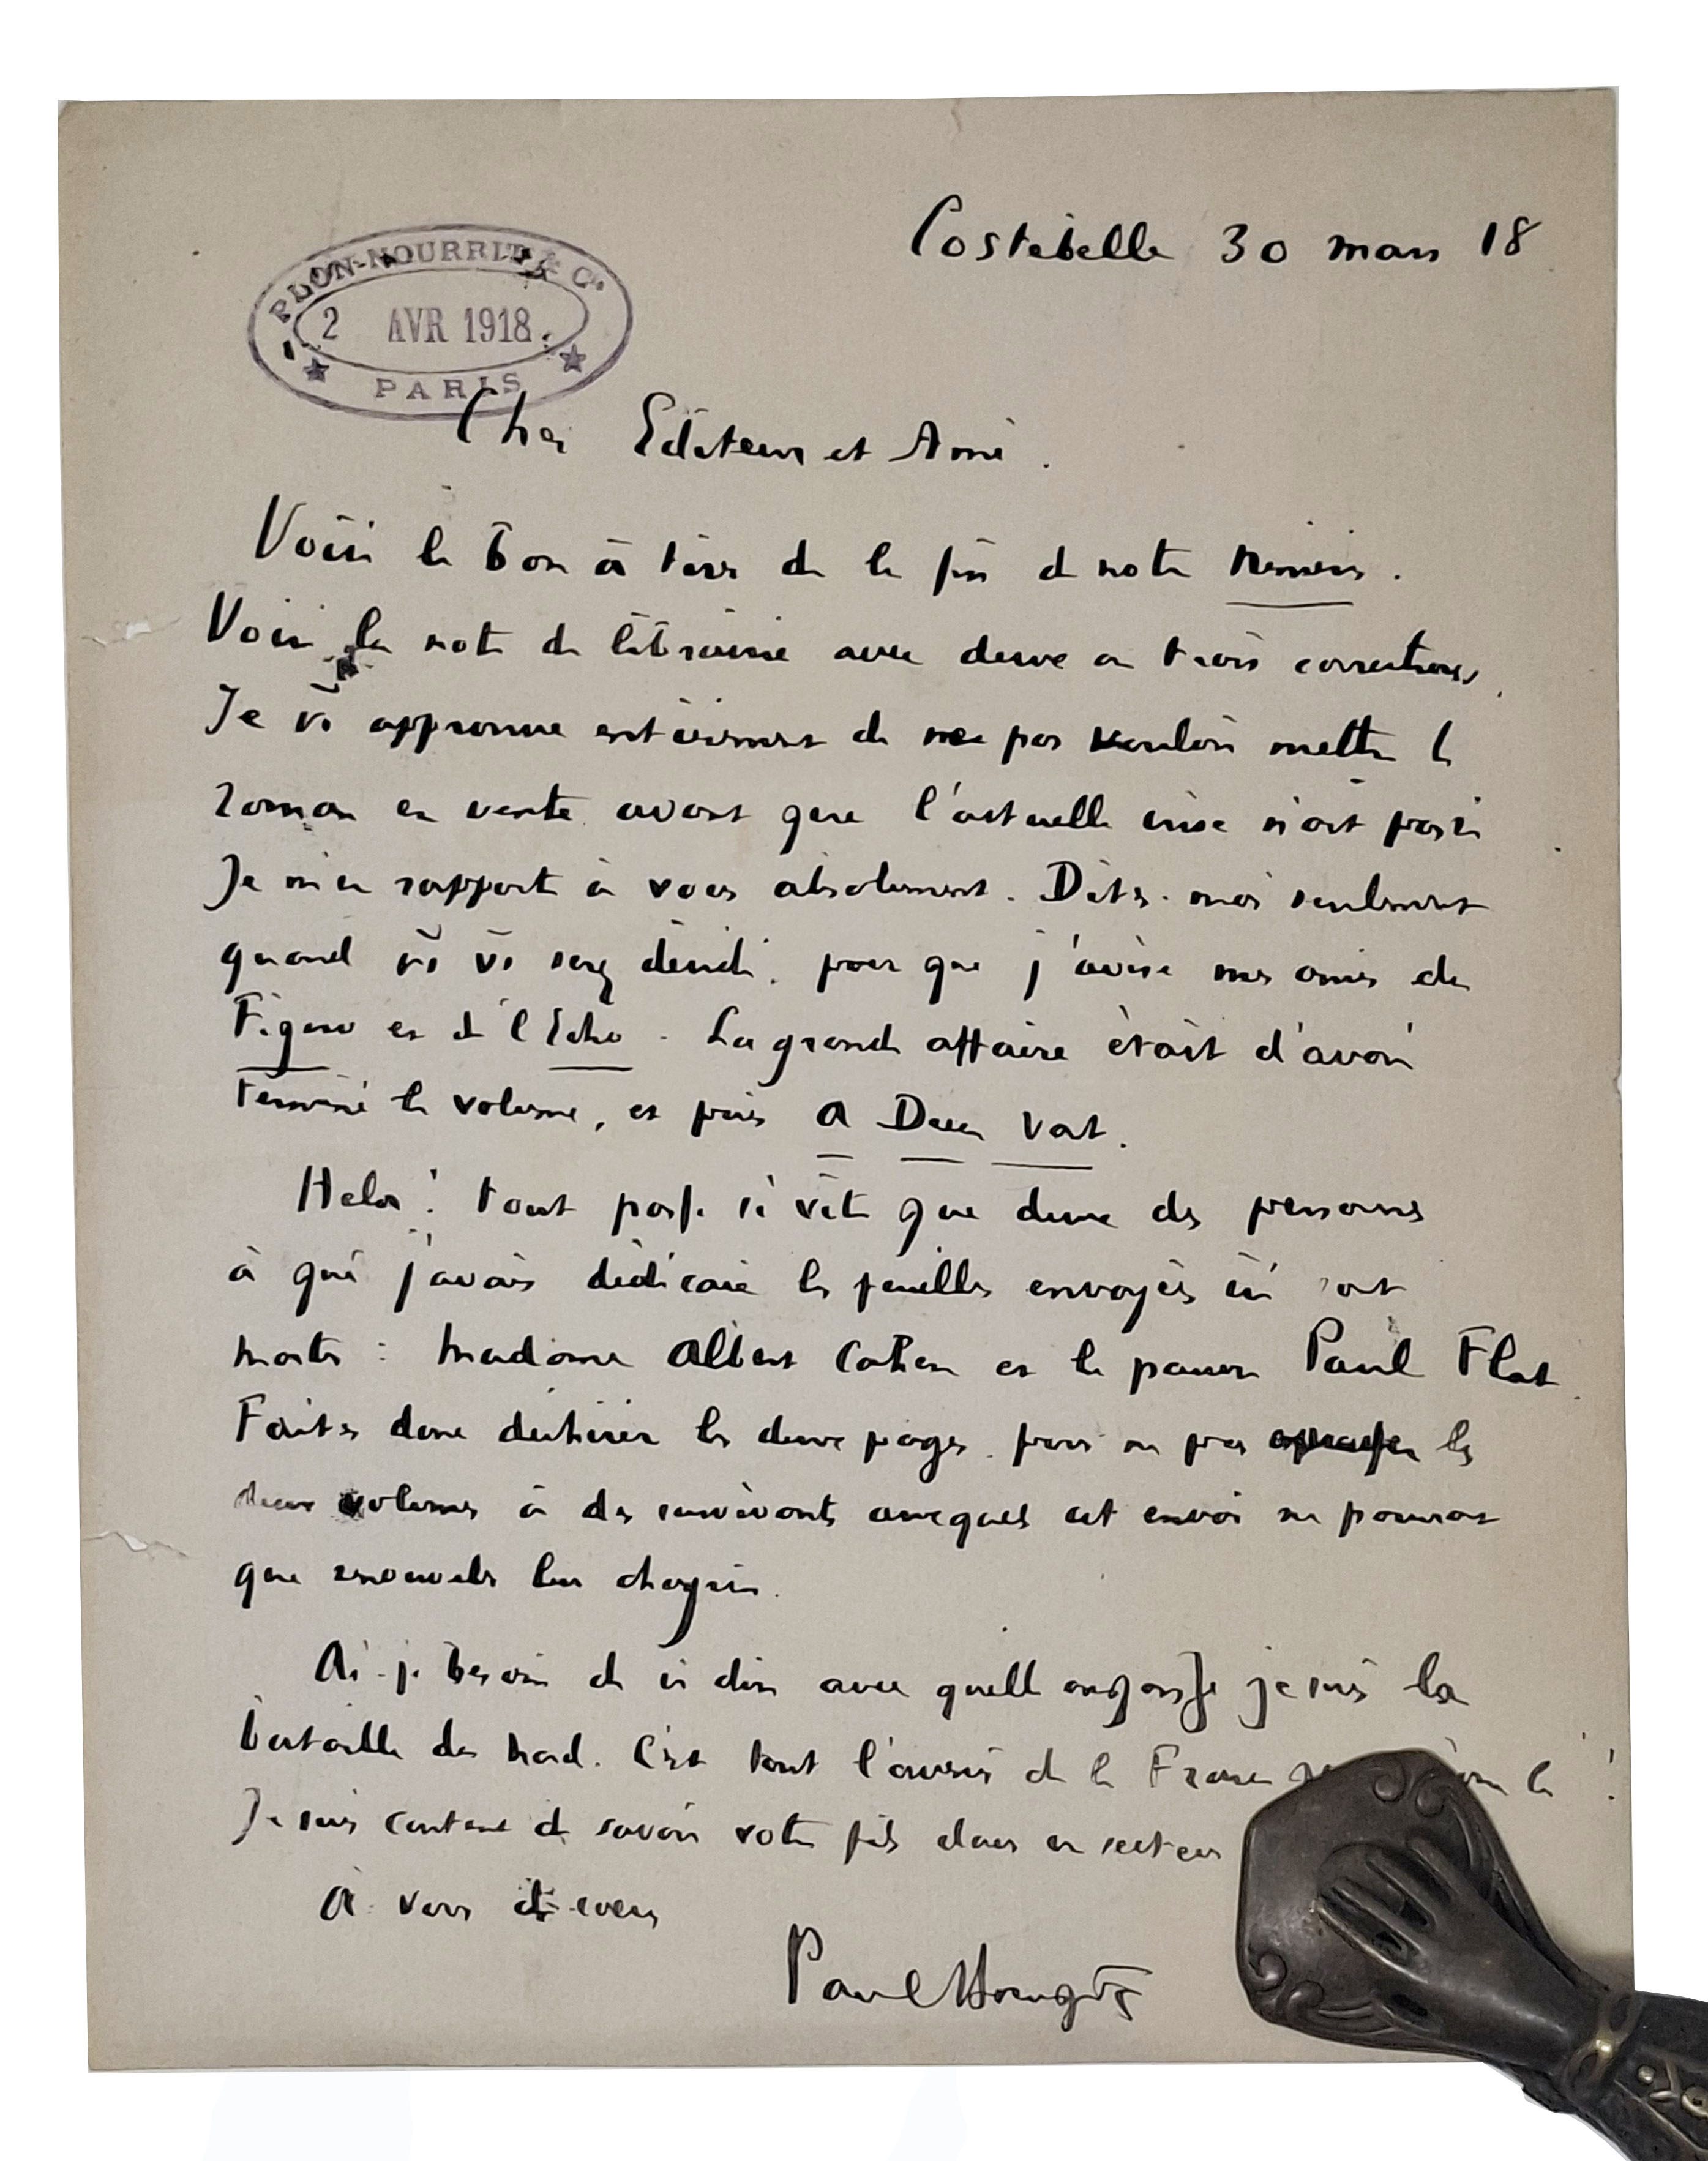 Costebelle 30 mars 18
PLON-NOURRIT & Cie
2 AVR 1918
PARIS
Cher Editeur et Ami.
Voici le bon à tirer de la fin de notre Némésis.
Voici la note de librairie avec deux ou trois corrections.
Je vs approuve entièrement de ne pas vouloir mettre le
roman en vente avant que l'actuelle crise n'ait passé
Je m'en rapporte à vous absolument. Dites-moi seulement
quand vs vs serez décidé, pour que j'avise mes amis du
Figaro et de l'Echo. La grande affaire était d'avoir
terminé le volume, et puis A Dieu Vat.
Helas! tout passe si vite que deux des personnes
à qui j'avais dédicacé les feuilles envoyées ici sont
mortes: Madame Albert Cahen et le pauvre Paul Flat.
Faites donc déchirer les deux pages pour ne pas les
deux volumes à des survivants auxquels cet envoi ne pourrait
que renouveler leur chagrin.
Ai-je besoin de vs dire avec quelle angoisse je suis la
bataille du Nord. C'est tout l'avenir de la France là!
Je suis content de savoir votre fils dans un secteur
A vous de coeur
Paul Bourget